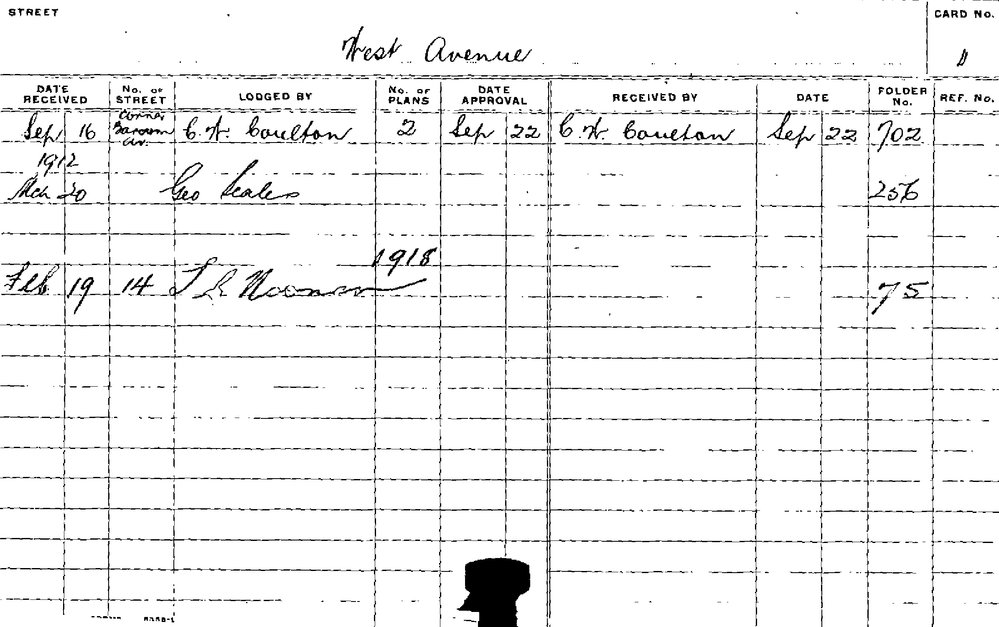 STREET West Avenue CARD No. 1
DATE RECEIVED No. OF STREET LODGED BY No. OF PLANS DATE APPROVAL RECEIVED BY DATE FOLDER No. REF. No.
Sep 16 corner av. C. W. Coulton 2 Sep 22 C. W. Coulton Sep 22 702
1912
Mch 20 Geo Scales 256
1918
Feb 19 14 Noonan 75